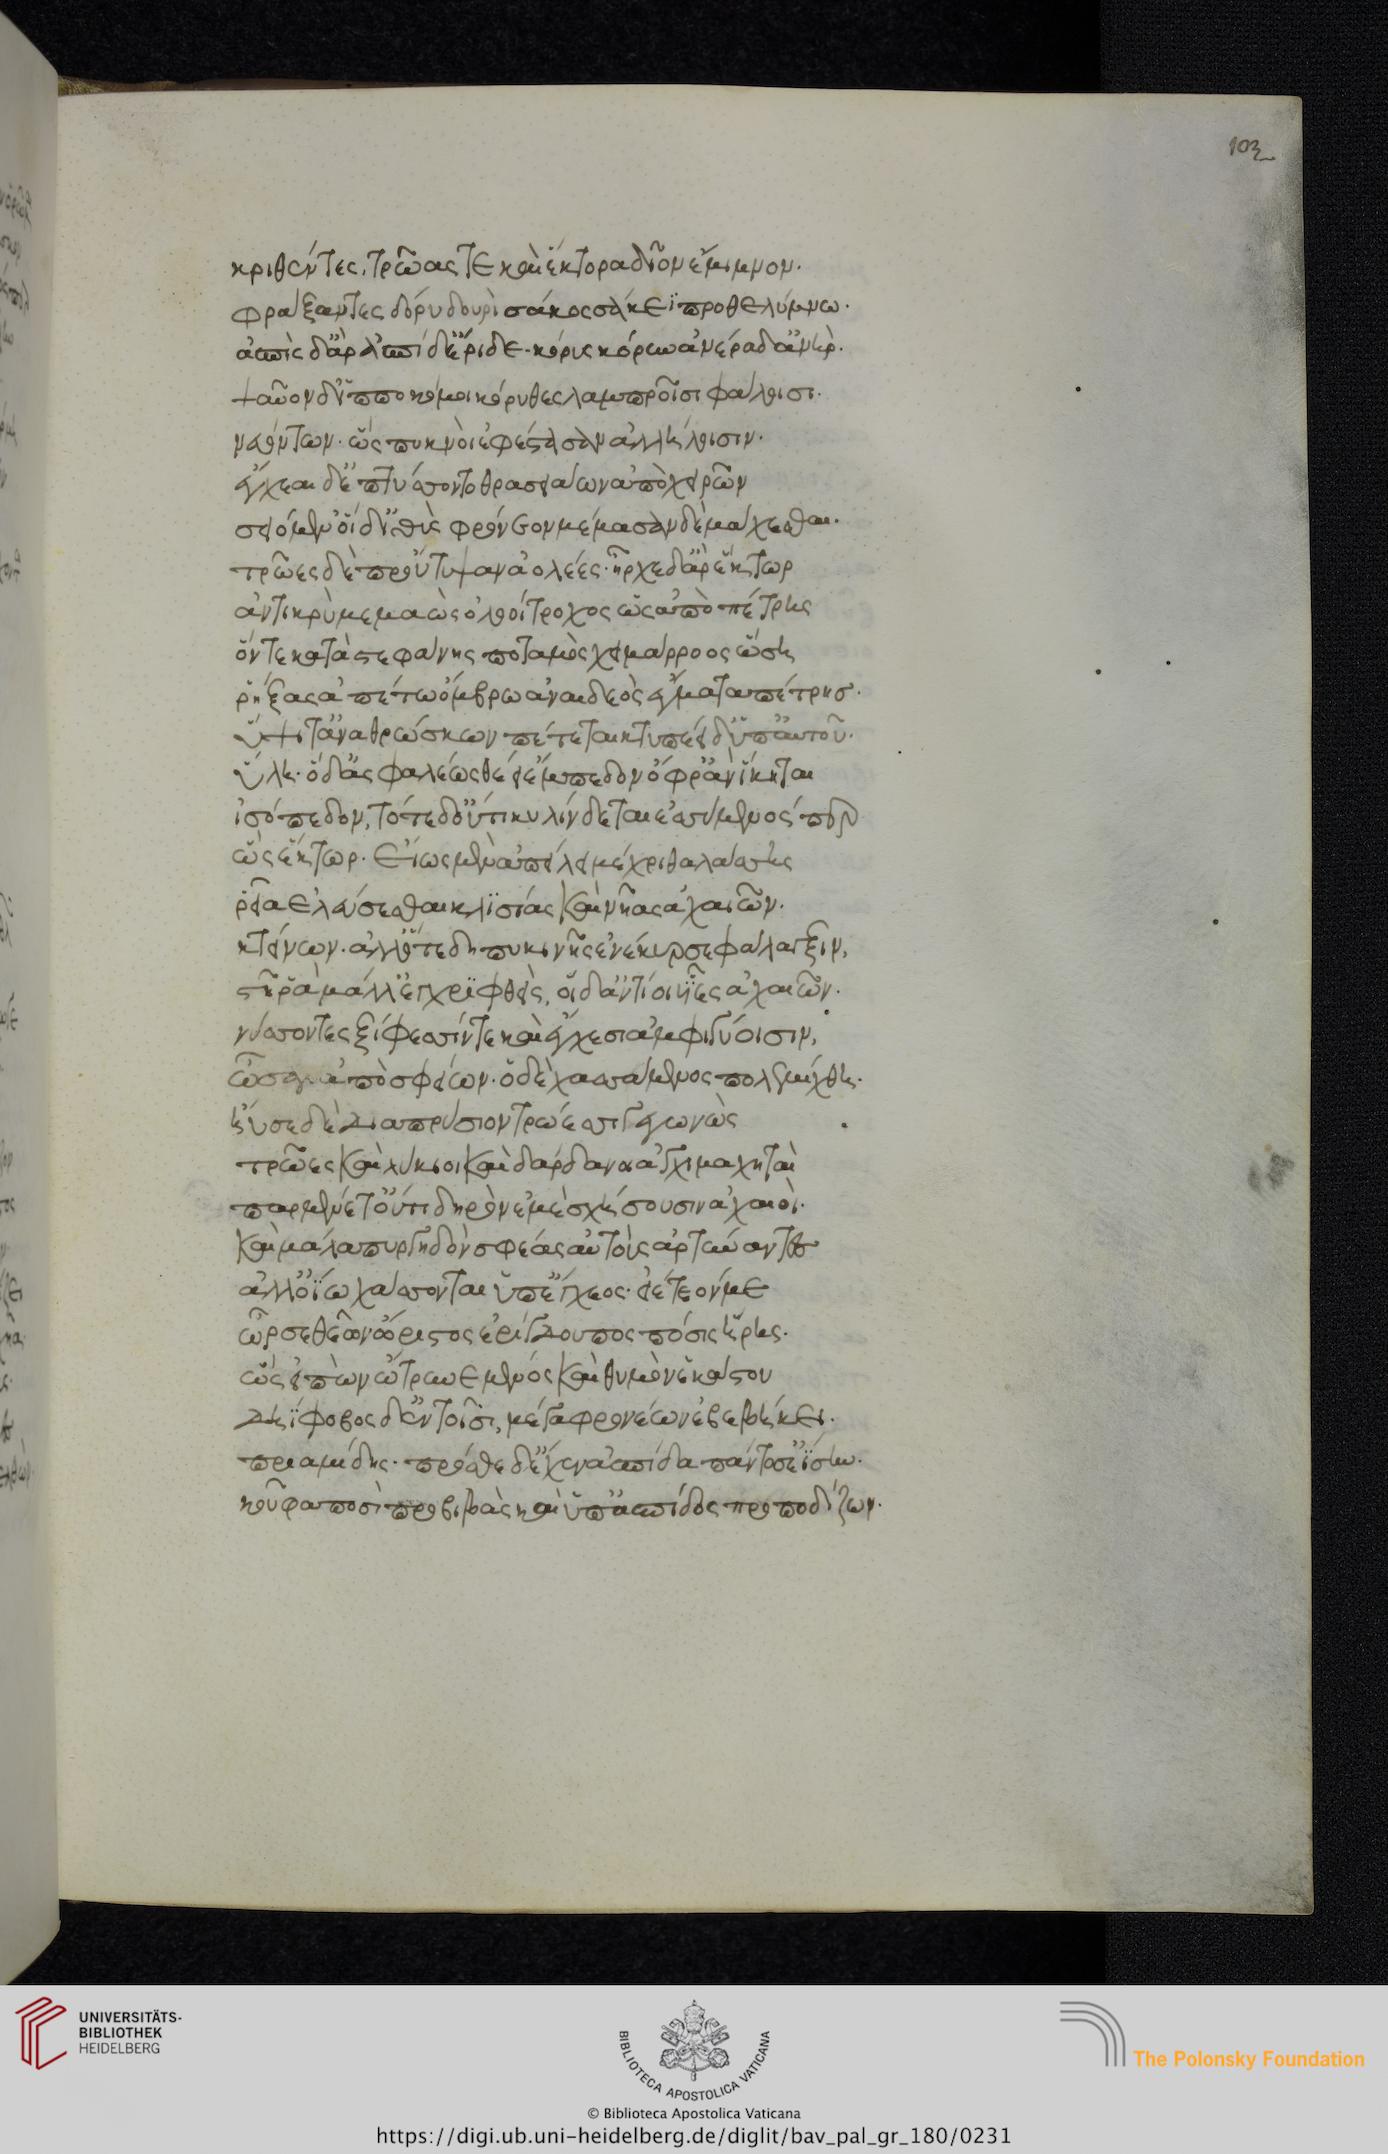 103
κριθέντες, τρῶας τε καὶ ἕκτορα δῖον ἔμιμνον.
φράξαντες δόρυ δουρὶ σάκος σάκεϊ προθελύμνω.
ἀσπὶς δ᾽ ἄρ᾽ ἀσπίδ᾽ ἔριδε. κόρυς κόρυν ἀνέρα δ᾽ ἀνήρ.
ψαῦον δ᾽ ἵπποκόμοι κόρυθες λαμπροῖσι φάλοισι.
νευόντων. ὣς πυκνοὶ ἐφέστασαν ἀλλήλοισιν.
ἔγχεαι δὲ πτύσσοντο θρασειάων ἀπὸ χειρῶν
σειόμεν᾽ οἱ δ᾽ ἰθὺς φρόνεον μέμασαν δὲ μάχεσθαι.
τρῶες δὲ προὔτυψαν ἀολέες. ἦρχε δ᾽ ἄρ᾽ ἕκτωρ
ἀντικρὺ μεμαὼς ὀλοοίτροχος ὣς ἀπὸ πέτρης
ὅν τε κατὰ στεφάνης ποταμὸς χειμάρροος ὤση
ῥήξας ἀσπέτω ὄμβρω ἀναιδέος ἔχματα πέτρης.
ὕψι τ᾽ ἀναθρώσκων πέτεται κτυπέει δ᾽ ὑπ᾽ αὐτοῦ.
ὕλη. ὁ δ᾽ ἀσφαλέως θέει ἔμπεδον ὄφρ᾽ ἂν ἵκηται
ἰσόπεδον, τότε δ᾽ οὔτι κυλίνδεται ἐσσύμενός περ
ὣς ἕκτωρ. εἵως μὲν ἀπείλει μέχρι θαλάσσης
ῥεῖα ἐλεύσεσθαι κλϊσίας καὶ νῆας ἀχαιῶν.
κτείνων. ἀλλ᾽ ὅτε δὴ πυκινῆς ἐνέκυρσε φάλαγξιν,
στῆ ῥα μάλ᾽ ἐγχριμφθεὶς, οἱ δ᾽ ἀντίοι υἷες ἀχαιῶν.
νύσσοντες ξίφεσίν τε καὶ ἔγχεσι ἀμφιγύοισιν,
ὦσαν ἀπὸ σφείων. ὁ δὲ χασσάμενος πολεμίχθη.
ἤϋσε δὲ διαπρύσιον τρώεσσι γεγωνὼς
τρῶες καὶ λύκιοι καὶ δάρδανοι ἀγχιμαχηταὶ
παρμένετ᾽ οὔτι δηρὸν ἐμὲ σχήσουσιν ἀχαιοί.
καὶ μάλα πυργηδὸν σφέας αὐτοὺς ἀρτύναντες
ἀλλ᾽ ὀΐω χάσσονται ὑπ᾽ ἔγχεος. εἰ ἐτεόν με
ὦρσε θεῶν ὤριστος ἐρίγδουπος πόσις ἥρης.
ὣς εἰπὼν ὤτρυνε μένος καὶ θυμὸν ἑκάστου
δηΐφοβος δ᾽ ἐν τοῖσι, μέγα φρονέων ἐβεβήκει.
πριαμίδης. πρόσθε δ᾽ ἔχεν ἀσπίδα πάντοσ᾽ ἐΐσην.
κοῦφα ποσὶ προβιβὰς καὶ ὑπ᾽ ἀσπίδος προποδίζων.
UNIVERSITÄTS-
BIBLIOTHEK
HEIDELBERG
BIBLIOTECA APOSTOLICA VATICANA
The Polonsky Foundation
© Biblioteca Apostolica Vaticana
https://digi.ub.uni-heidelberg.de/diglit/bav_pal_gr_180/0231